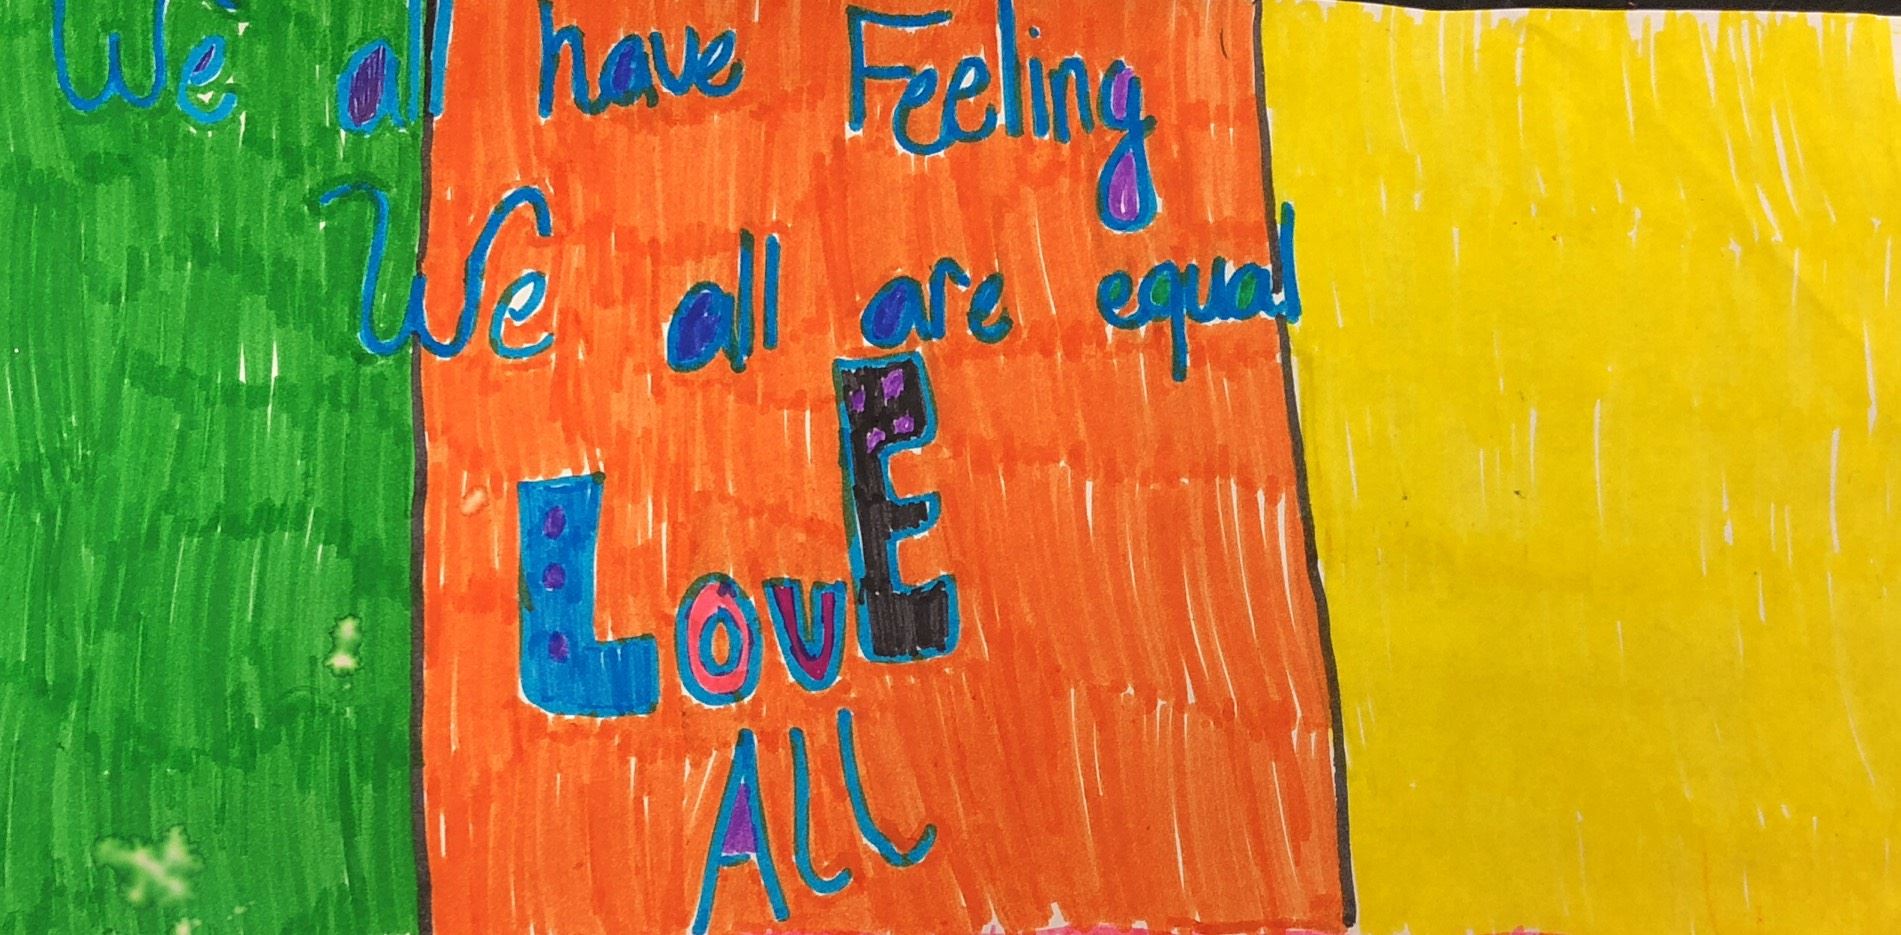 We all have Feeling
We all are equal
LovE
ALL